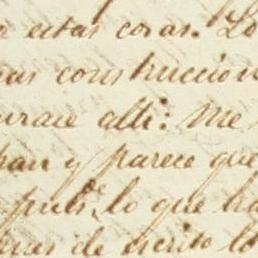 e estas cosas. Lo
construccion
alli: Me
han y parece que
pues, de lo que ha
de escrito lo